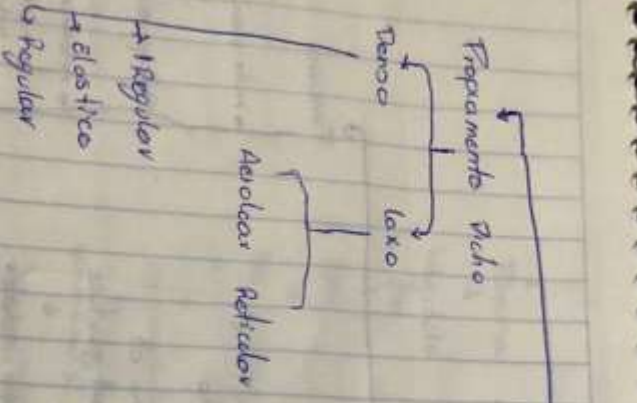 Propiamente Dicho
Denso
Laxo
Areolar
Reticular
Irregular
Elastico
Regular